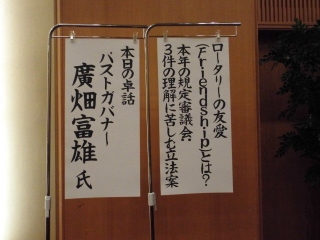 ロータリーの友愛
(Friendship)とは?
本年の規定審議会:
3件の理解に苦しむ立法案
本日の卓話
パストガバナー
廣畑富雄 氏